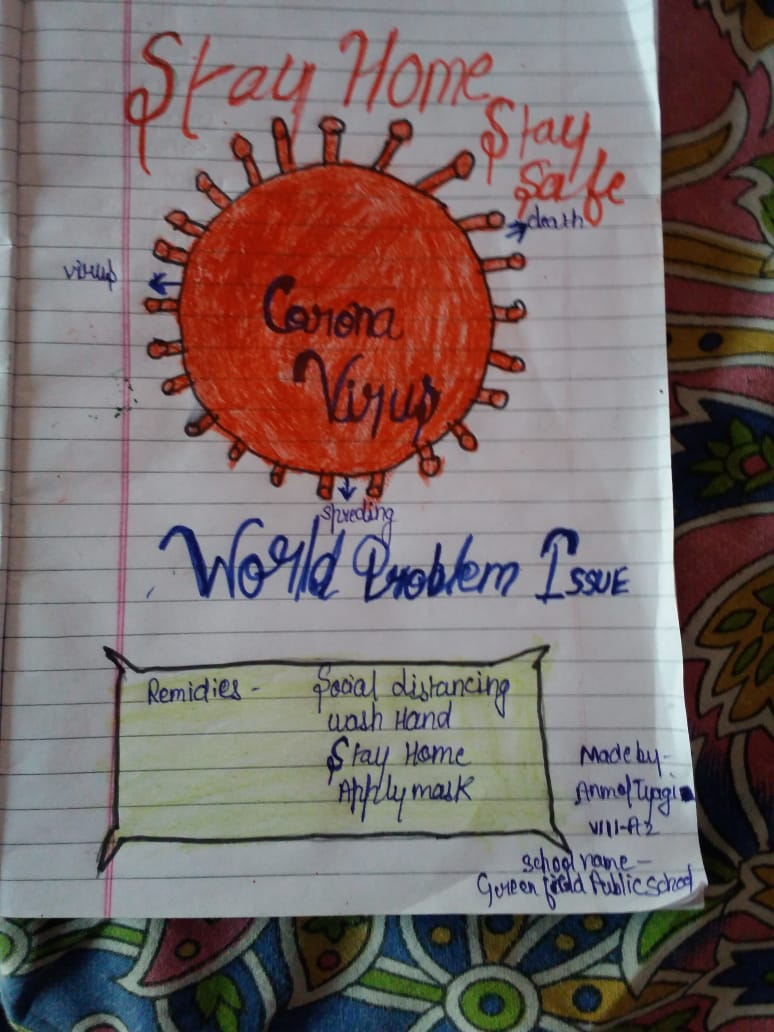 Stay Home
Stay
Safe
death
virus
Corona
Virus
spreding
World Problem ISSUE
Remidies - Social distancing
wash Hand
Stay Home
Apply mask
Made by-
Anmol Tyagi
VIII-A2
school name-
Green field Public School